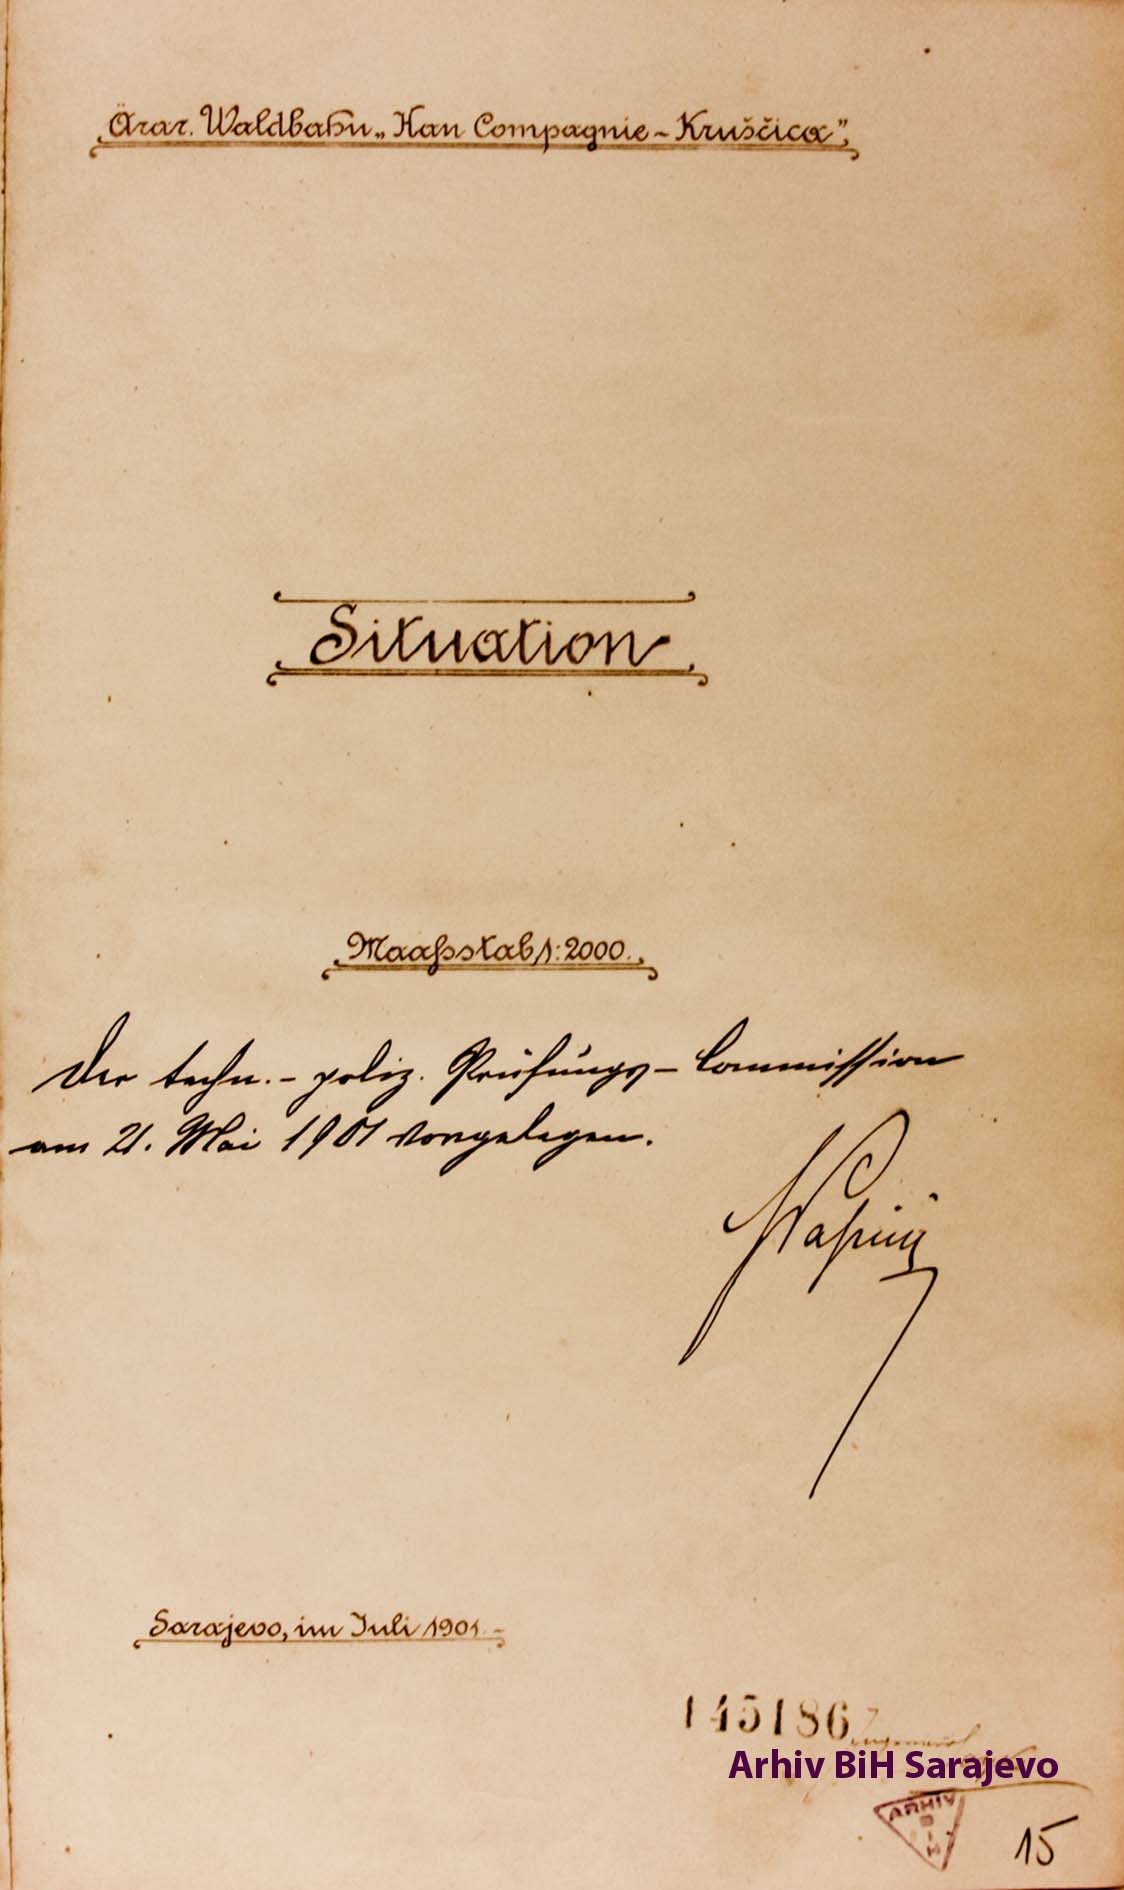 Ärar. Waldbahn „Han Compagnie - Kruščica”
Situation
Maaßstab 1:2000.
Der techn. - poliz. Prüfungs - Commission
am 21. Mai 1901 vorgelegen.
Sarajevo, im Juli 1901.-
145186
Arhiv BiH Sarajevo
ARHIV
BIH
15